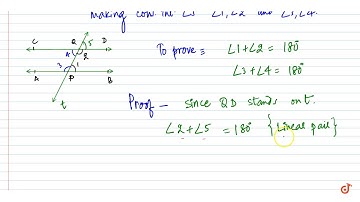 making coin int ∠s ∠1,∠2 and ∠3,∠4.
To prove :- ∠1+∠2 = 180°
∠3+∠4 = 180°
Proof — since QD stands on t.
∠2+∠5 = 180° {Linear pair}
C Q 5 D
4 2
3 1
A P B
t